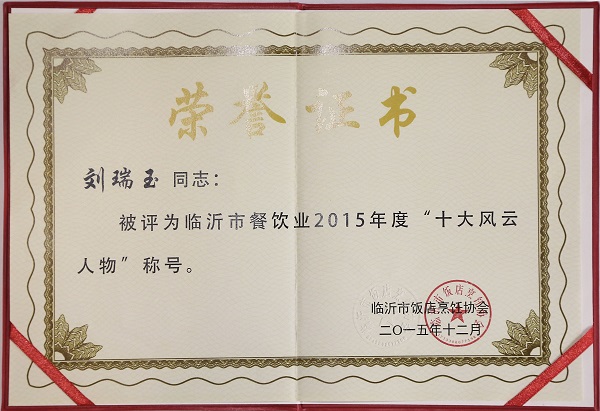 荣誉证书
刘瑞玉 同志：
被评为临沂市餐饮业2015年度“十大风云
人物”称号。
临沂市饭店烹饪协会
二〇一五年十二月